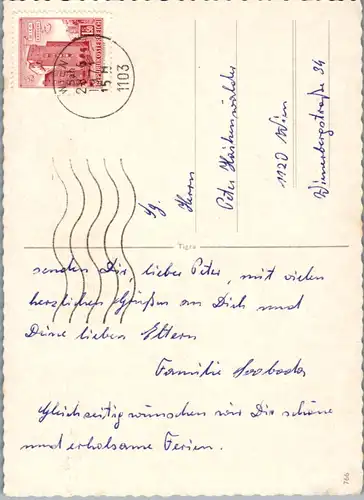 WIEN
1103
15 H
Sg.
Herrn
Peter
1120 Wien
Wienerbergstraße 34
Tigra
senden Dir, lieber Peter, mit vielen
herzlichen Grüßen an Dich und
Deine lieben Eltern
Familie Swoboda
Gleichzeitig wünschen wir Dir schöne
und erholsame Ferien.
766